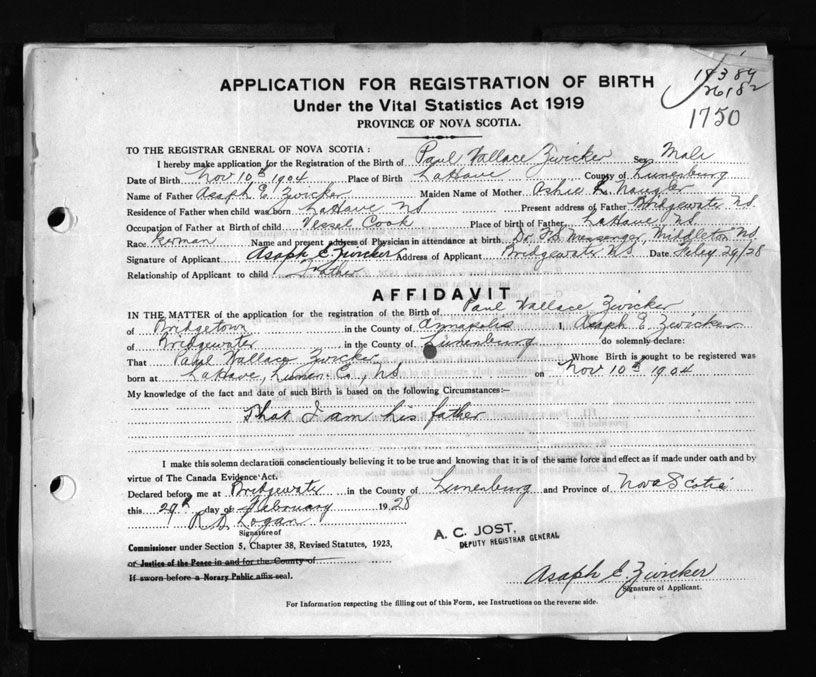 APPLICATION FOR REGISTRATION OF BIRTH
Under the Vital Statistics Act 1919
PROVINCE OF NOVA SCOTIA.
1750
TO THE REGISTRAR GENERAL OF NOVA SCOTIA :
I hereby make application for the Registration of the Birth of Paul Wallace Zwicker Sex Male
Date of Birth Nov 10th 1904 Place of Birth LaHave County of Lunenburg
Name of Father Asaph E Zwicker Maiden Name of Mother Naugler
Residence of Father when child was born LaHave NS Present address of Father Bridgewater NS.
Occupation of Father at Birth of child Vessel Cook Place of birth of Father LaHave NS.
Race German Name and present address of Physician in attendance at birth Dr. Messenger, Middleton NS
Signature of Applicant Asaph E. Zwicker Address of Applicant Bridgewater NS Date Feby 29/28
Relationship of Applicant to child Father
AFFIDAVIT
IN THE MATTER of the application for the registration of the Birth of Paul Wallace Zwicker
of Bridgetown in the County of Annapolis I Asaph E Zwicker
of Bridgewater in the County of Lunenburg do solemnly declare:
That Paul Wallace Zwicker Whose Birth is sought to be registered was
born at LaHave, Lunen. Co., NS. on Nov 10th 1904
My knowledge of the fact and date of such Birth is based on the following Circumstances:—
That I am his father
I make this solemn declaration conscientiously believing it to be true and knowing that it is of the same force and effect as if made under oath and by
virtue of The Canada Evidence Act.
Declared before me at Bridgewater in the County of Lunenburg and Province of Nova Scotia
this 29th day of February 1928
R Logan
Signature of
A. C. JOST,
DEPUTY REGISTRAR GENERAL
Commissioner under Section 5, Chapter 38, Revised Statutes, 1923,
or Justice of the Peace in and for the County of
If sworn before a Notary Public affix seal.
Asaph E. Zwicker
Signature of Applicant.
For Information respecting the filling out of this Form, see Instructions on the reverse side.